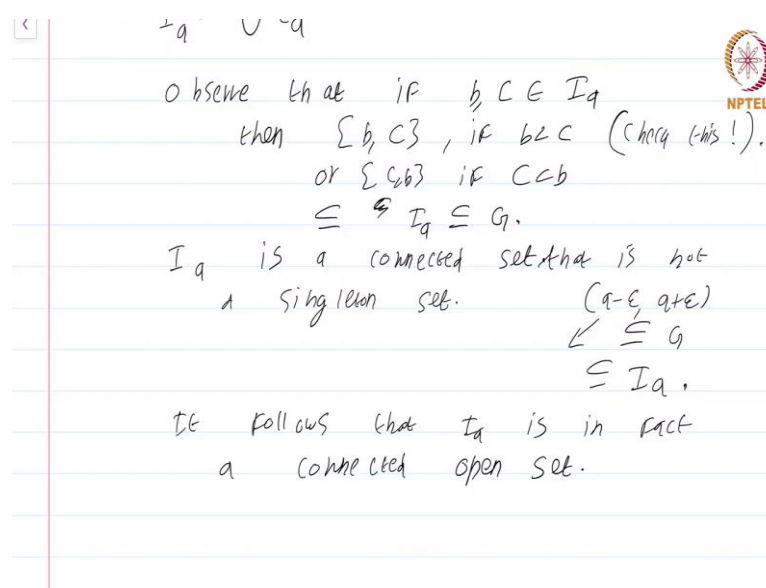 I_a ∪ C_a
Observe that if b, C ∈ I_a
NPTEL
then [b, C], if b < C (Check this!).
or [C, b] if C < b
⊆ I_a ⊆ G.
I_a is a connected set that is not
a singleton set. (a-ε, a+ε)
↙ ⊆ G
⊆ I_a.
It follows that I_a is in fact
a connected open set.